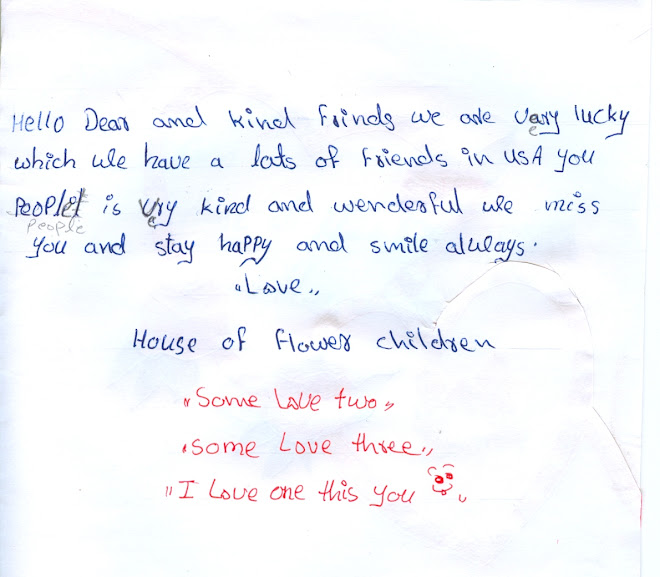 Hello Dear and kind Frinds we are very lucky
which we have a lots of Friends in USA you
People is very kind and wenderful we miss
People
you and stay happy and smile always.
"Love"
House of flower children
"Some Love two"
"some Love three"
"I Love one this you"